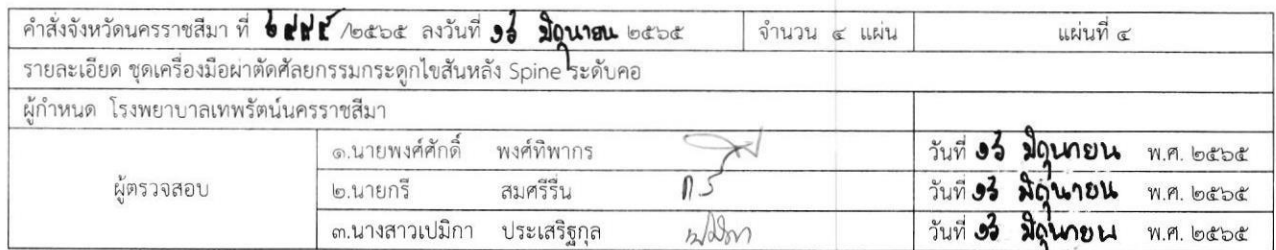 คำสั่งจังหวัดนครราชสีมา ที่ ๖๙๙๕ /๒๕๖๕ ลงวันที่ ๑๖ มิถุนายน ๒๕๖๕ จำนวน ๔ แผ่น แผ่นที่ ๔
รายละเอียด ชุดเครื่องมือผ่าตัดศัลยกรรมกระดูกไขสันหลัง Spine ระดับคอ
ผู้กำหนด โรงพยาบาลเทพรัตน์นครราชสีมา
๑.นายพงศ์ศักดิ์ พงศ์ทิพากร วันที่ ๑๖ มิถุนายน พ.ศ. ๒๕๖๕
ผู้ตรวจสอบ ๒.นายกรี สมศรีรื่น วันที่ ๑๖ มิถุนายน พ.ศ. ๒๕๖๕
๓.นางสาวเปมิกา ประเสริฐกุล วันที่ ๑๖ มิถุนายน พ.ศ. ๒๕๖๕